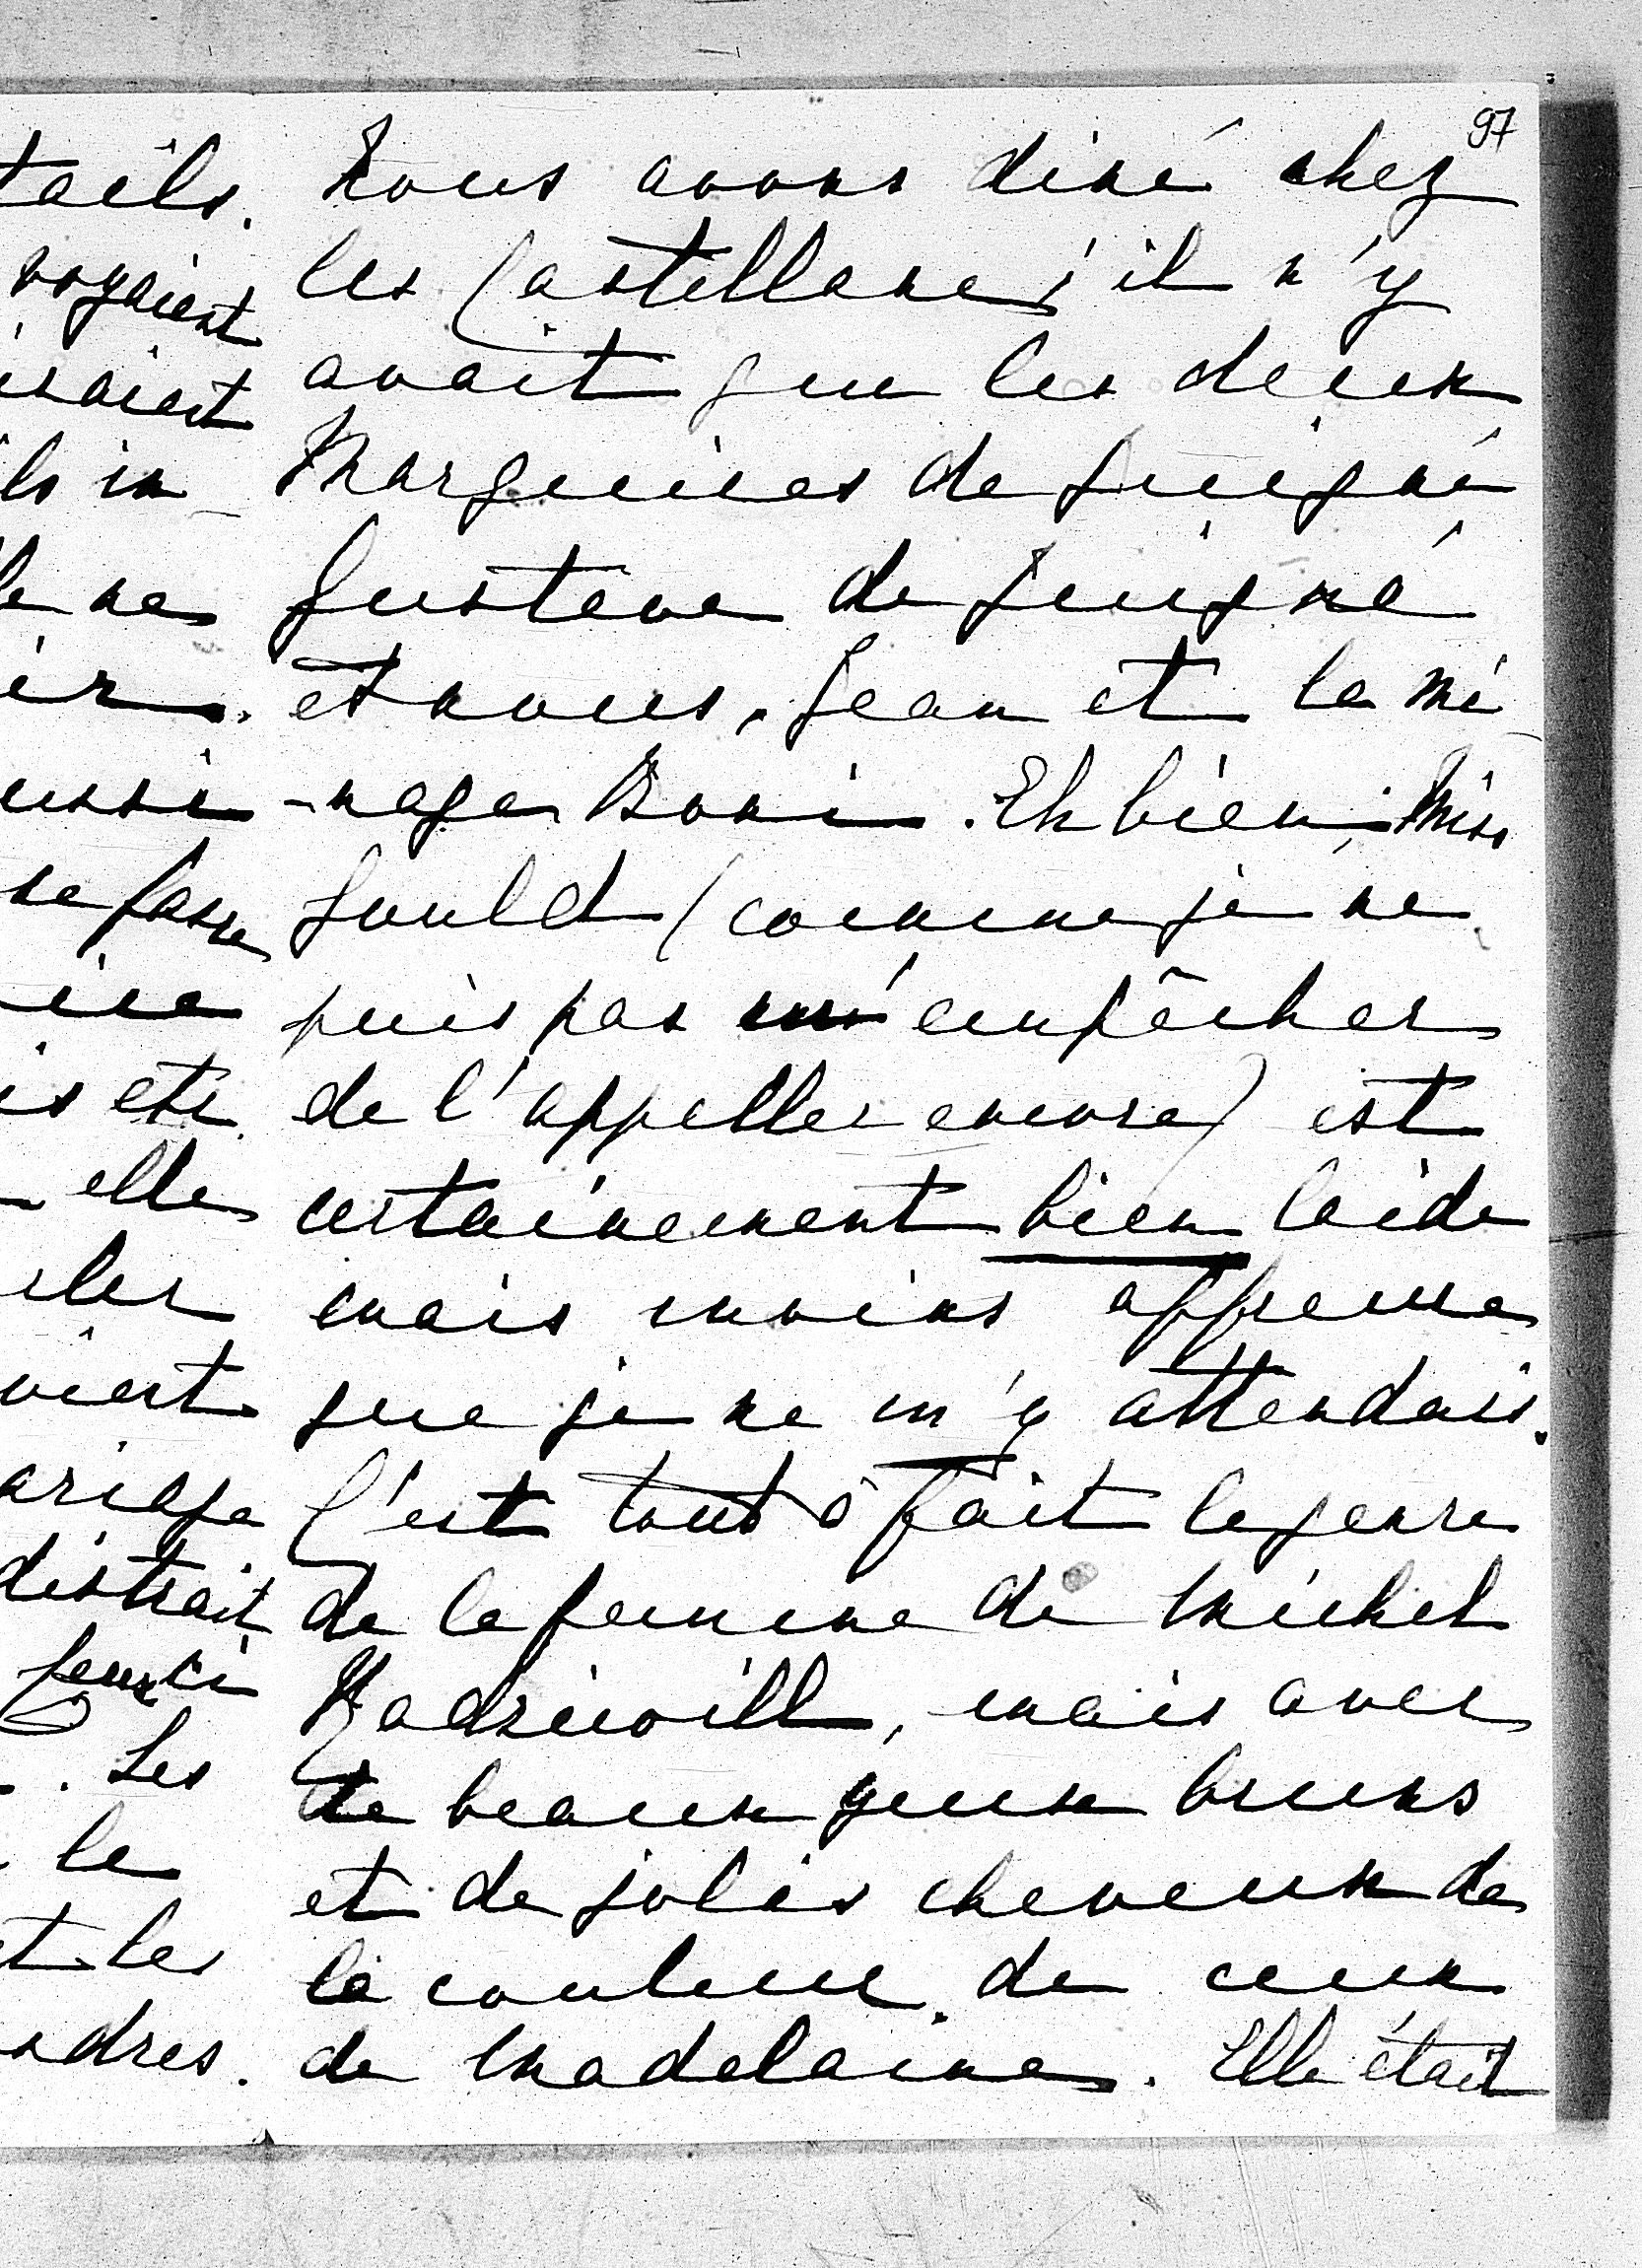 97
Nous avons diné chez
les Castellane; il n'y
avait que les deux
Marquises de Juigné
Gustave de Juigné
et nous, Jean et le mé
-nage Boni. Eh bien, Miss
Gould (comme je ne
puis pas m'empêcher
de l'appeller encore) est
certainement bien laide
mais moins affreuse
que je ne m'y attendais.
C'est tout à fait le genre
de la femme de Michel
Radziwill, mais avec
de beaux yeux bruns
et de jolis cheveux de
la couleur de ceux
de Madelaine. Elle était
tails.
voyaient
isaient
ls in
le ne
ir.
ussi
se fasse
is etc.
elle
rler
vient
ariage
distrait
. Les
le
t les
ndres.